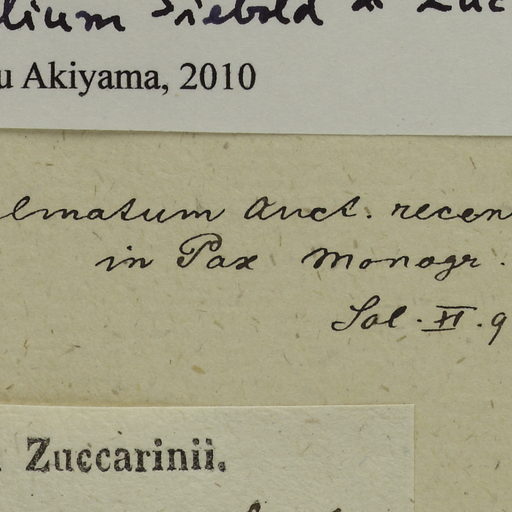 lium Siebold & Zuc
u Akiyama, 2010
lmatum Auct. recen
in Pax Monogr.
Sol. XI. 9
Zuccarinii.